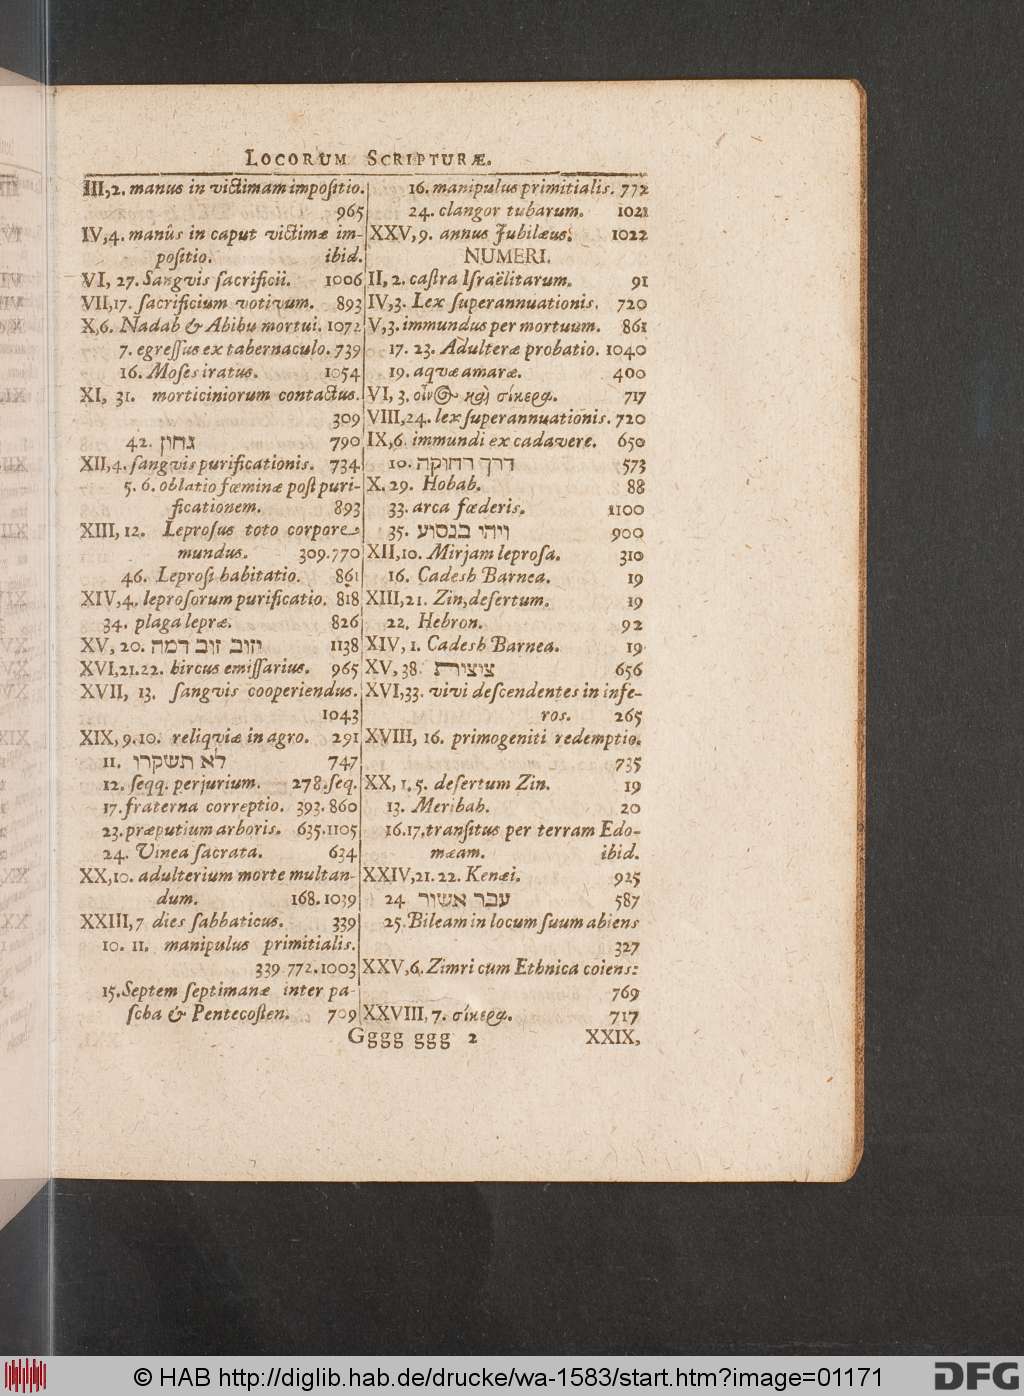 LOCORUM SCRIPTURÆ.
III,2. manus in victimam impositio.
965
IV,4. manûs in caput victimæ im-
positio. ibid.
VI, 27. Sangvis sacrificii. 1006
VII,17. sacrificium votivum. 893
X,6. Nadab & Abihu mortui. 1072
7. egressus ex tabernaculo. 739
16. Moses iratus. 1054
XI, 31. morticiniorum contactus.
309
42. גחון 790
XII,4. sangvis purificationis. 734
5. 6. oblatio fœminæ post puri-
ficationem. 893
XIII, 12. Leprosus toto corpore
mundus. 309.770
46. Leprosi habitatio. 861
XIV,4. leprosorum purificatio. 818
34. plaga lepræ. 826
XV, 20. יזוב זוב דמה 1138
XVI,21.22. hircus emissarius. 965
XVII, 13. sangvis cooperiendus.
1043
XIX, 9.10. reliqviæ in agro. 291
11. לא תשקרו 747
12. seqq. perjurium. 278.seq.
17. fraterna correptio. 393.860
23. præputium arboris. 635.1105
24. Vinea sacrata. 634
XX,10. adulterium morte multan-
dum. 168.1039
XXIII,7 dies sabbaticus. 339
10. 11. manipulus primitialis.
339 772.1003
15. Septem septimanæ inter pa-
scha & Pentecosten. 709
16. manipulus primitialis. 772
24. clangor tubarum. 1021
XXV,9. annus Jubilæus. 1022
NUMERI.
II, 2. castra Israëlitarum. 91
IV,3. Lex superannuationis. 720
V,3. immundus per mortuum. 861
17. 23. Adulteræ probatio. 1040
19. aqvæ amaræ. 400
VI, 3. οἶνος καὶ σίκερα. 717
VIII,24. lex superannuationis. 720
IX,6. immundi ex cadavere. 650
10. דרך רחוקה 573
X. 29. Hobab. 88
33. arca fœderis. 1100
35. ויהי בנסוע 900
XII,10. Mirjam leprosa. 310
16. Cadesh Barnea. 19
XIII,21. Zin, desertum. 19
22. Hebron. 92
XIV, 1. Cadesh Barnea. 19
XV, 38. ציצית 656
XVI,33. vivi descendentes in infe-
ros. 265
XVIII, 16. primogeniti redemptio.
735
XX, 1. 5. desertum Zin. 19
13. Meribah. 20
16.17. transitus per terram Edo-
mæam. ibid.
XXIV,21. 22. Kenæi. 925
24 עבר אשור 587
25. Bileam in locum suum abiens
327
XXV,6. Zimri cum Ethnica coiens:
769
XXVIII, 7. σίκερα. 717
Ggggg ggg 2 XXIX,
© HAB http://diglib.hab.de/drucke/wa-1583/start.htm?image=01171
DFG